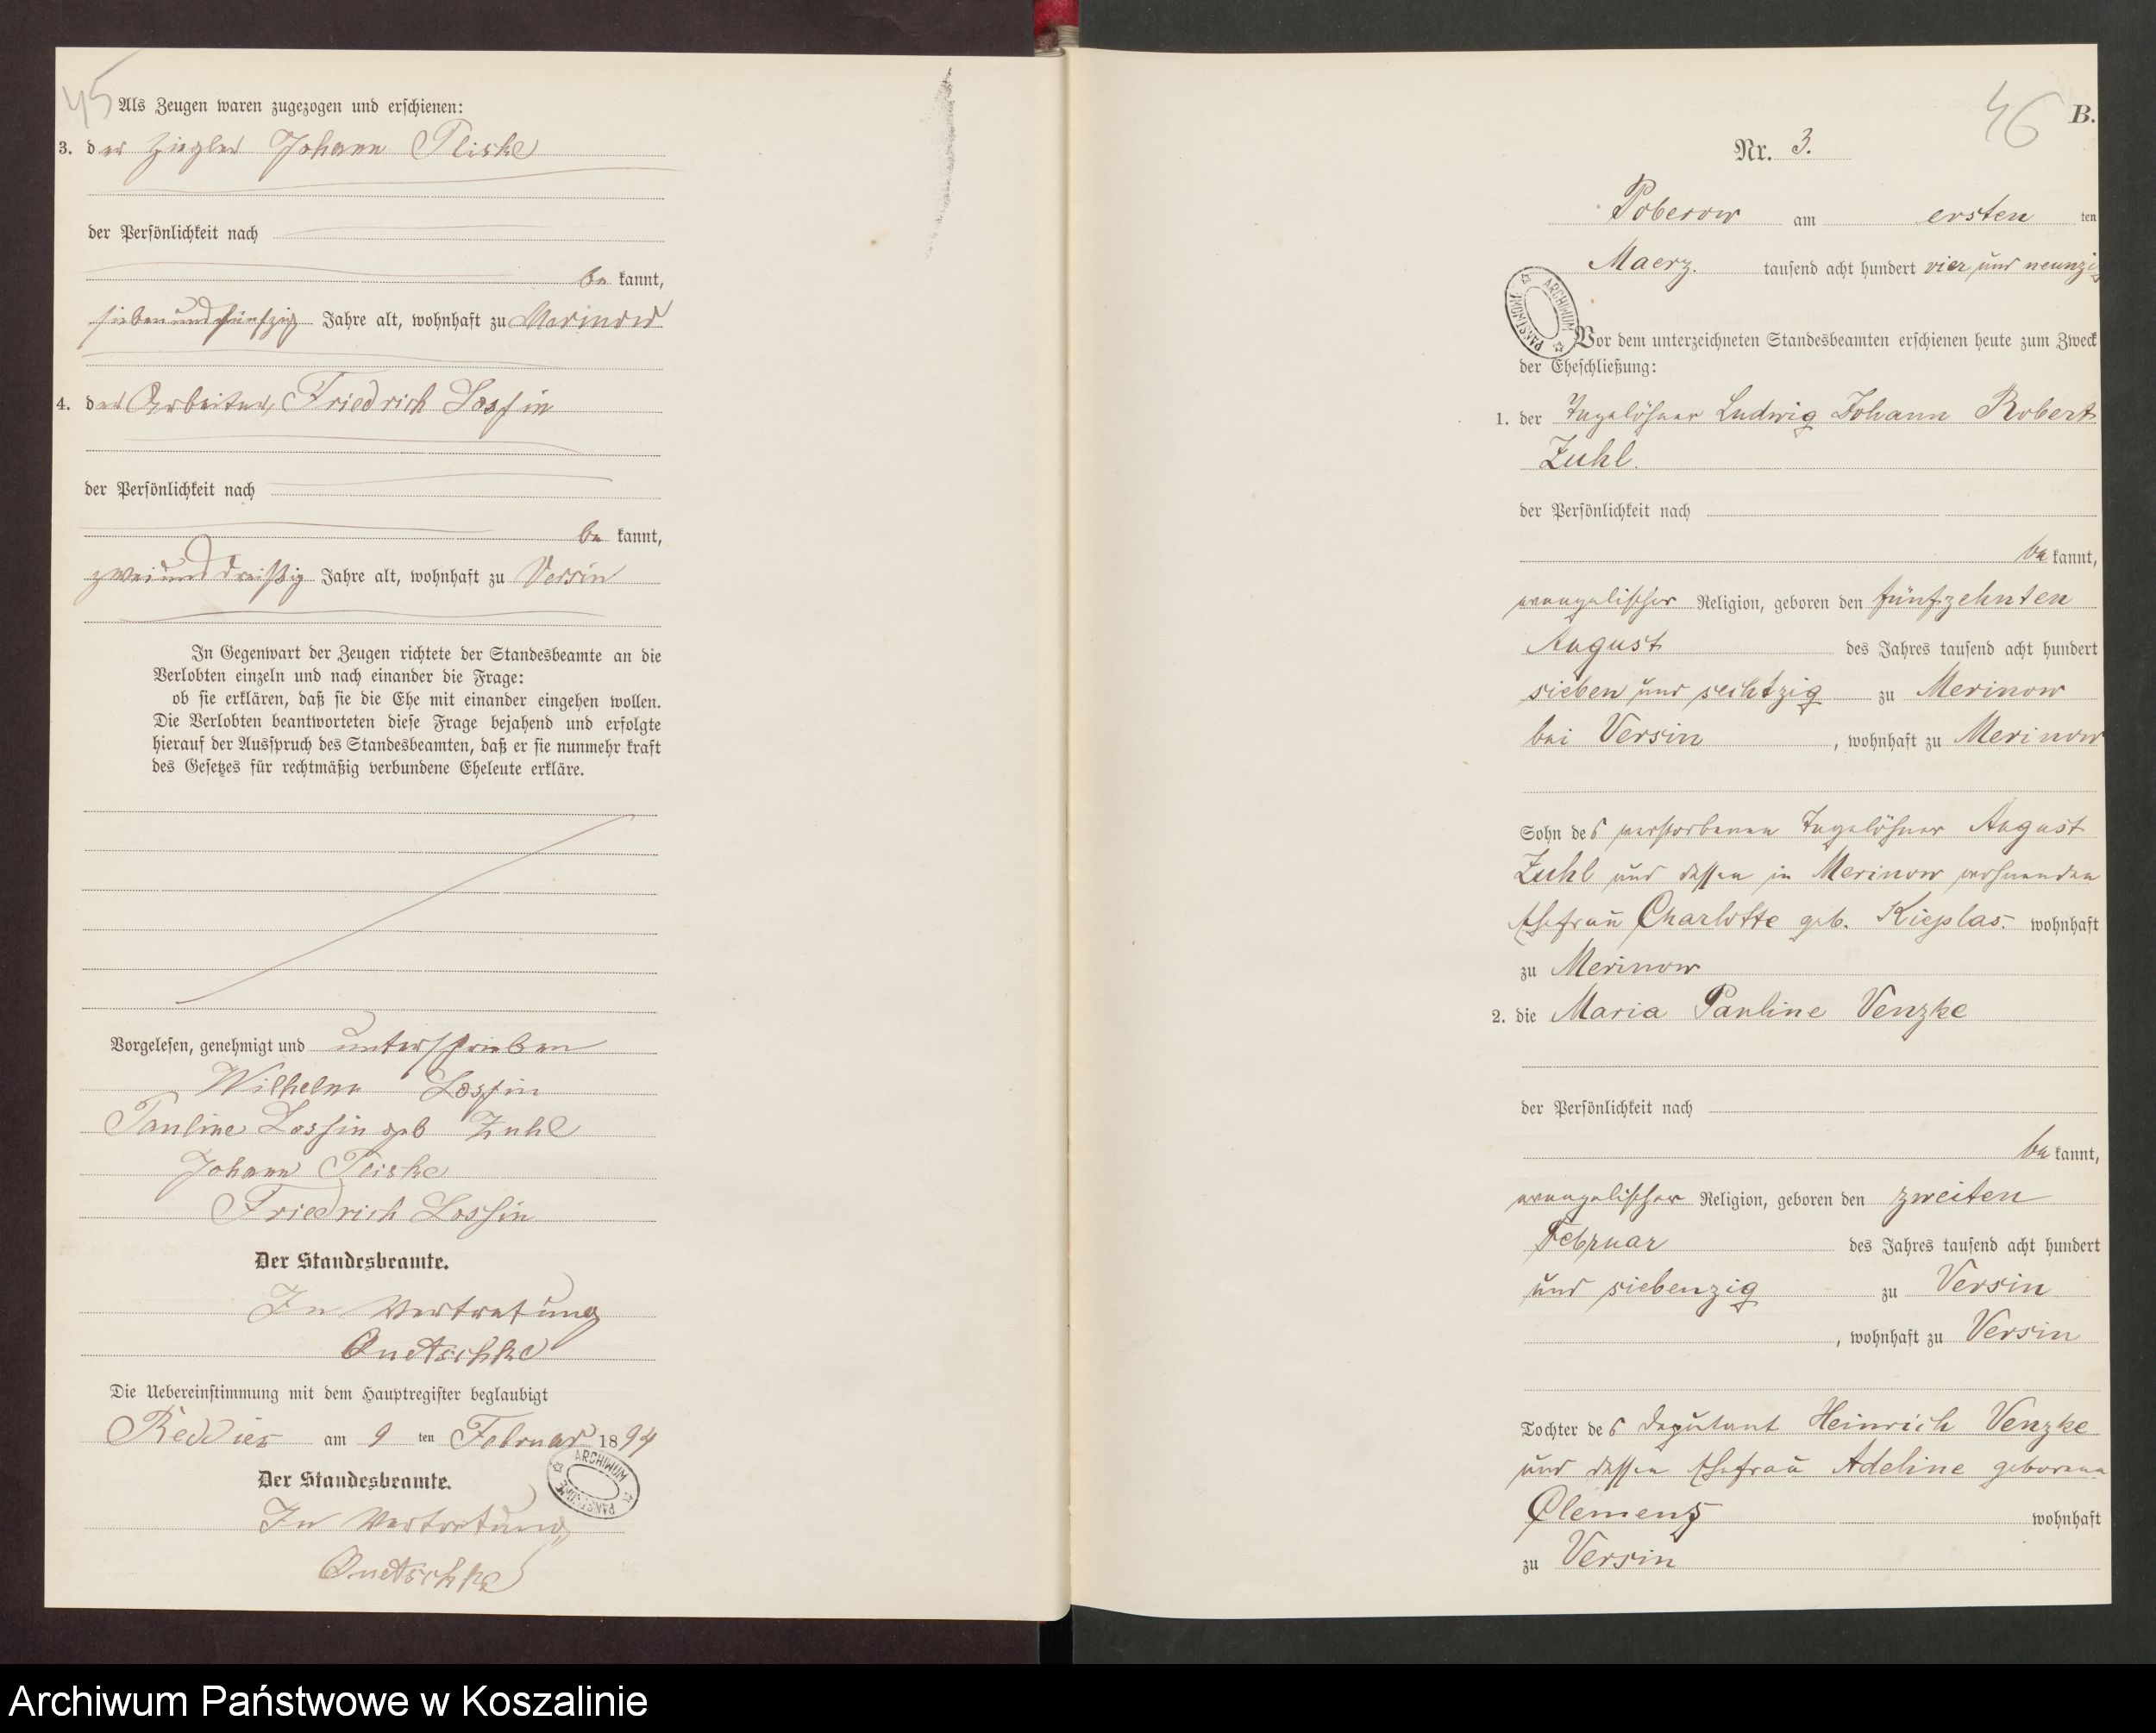 45
Als Zeugen waren zugezogen und erschienen:
3. der Ziegler Johann Pliske
der Persönlichkeit nach
be kannt,
siebenundfünfzig Jahre alt, wohnhaft zu Merinow
4. der Arbeiter Friedrich Lossin
der Persönlichkeit nach
be kannt,
zweiunddreißig Jahre alt, wohnhaft zu Versin
In Gegenwart der Zeugen richtete der Standesbeamte an die
Verlobten einzeln und nach einander die Frage:
ob sie erklären, daß sie die Ehe mit einander eingehen wollen.
Die Verlobten beantworteten diese Frage bejahend und erfolgte
hierauf der Ausspruch des Standesbeamten, daß er sie nunmehr kraft
des Gesetzes für rechtmäßig verbundene Eheleute erkläre.
Vorgelesen, genehmigt und unterschrieben
Wilhelm Lossin
Pauline Lossin geb Zuhl
Johann Pliske
Friedrich Lossin
Der Standesbeamte.
In Vertretung
Quetschke
Die Uebereinstimmung mit dem Hauptregister beglaubigt
Reddies am 9 ten Februar 1894
ARCHIWUM PAŃSTWOWE
Der Standesbeamte.
In Vertretung
Quetschke
46
B.
Nr. 3.
Poberow am ersten ten
Maerz. tausend acht hundert vier und neunzig
ARCHIWUM PAŃSTWOWE
Vor dem unterzeichneten Standesbeamten erschienen heute zum Zweck
der Eheschließung:
1. der Tagelöhner Ludwig Johann Robert
Zuhl.
der Persönlichkeit nach
be kannt,
evangelischer Religion, geboren den fünfzehnten
August des Jahres tausend acht hundert
sieben und sechtzig zu Merinow
bei Versin, wohnhaft zu Merinow
Sohn des verstorbenen Tagelöhner August
Zuhl und dessen in Merinow wohnenden
Ehefrau Charlotte geb. Kieplas. wohnhaft
zu Merinow
2. die Maria Pauline Venzke
der Persönlichkeit nach
be kannt,
evangelischer Religion, geboren den zweiten
Februar des Jahres tausend acht hundert
und siebenzig zu Versin
, wohnhaft zu Versin
Tochter des Deputant Heinrich Venzke
und dessen Ehefrau Adeline geborene
Clemenz wohnhaft
zu Versin
Archiwum Państwowe w Koszalinie